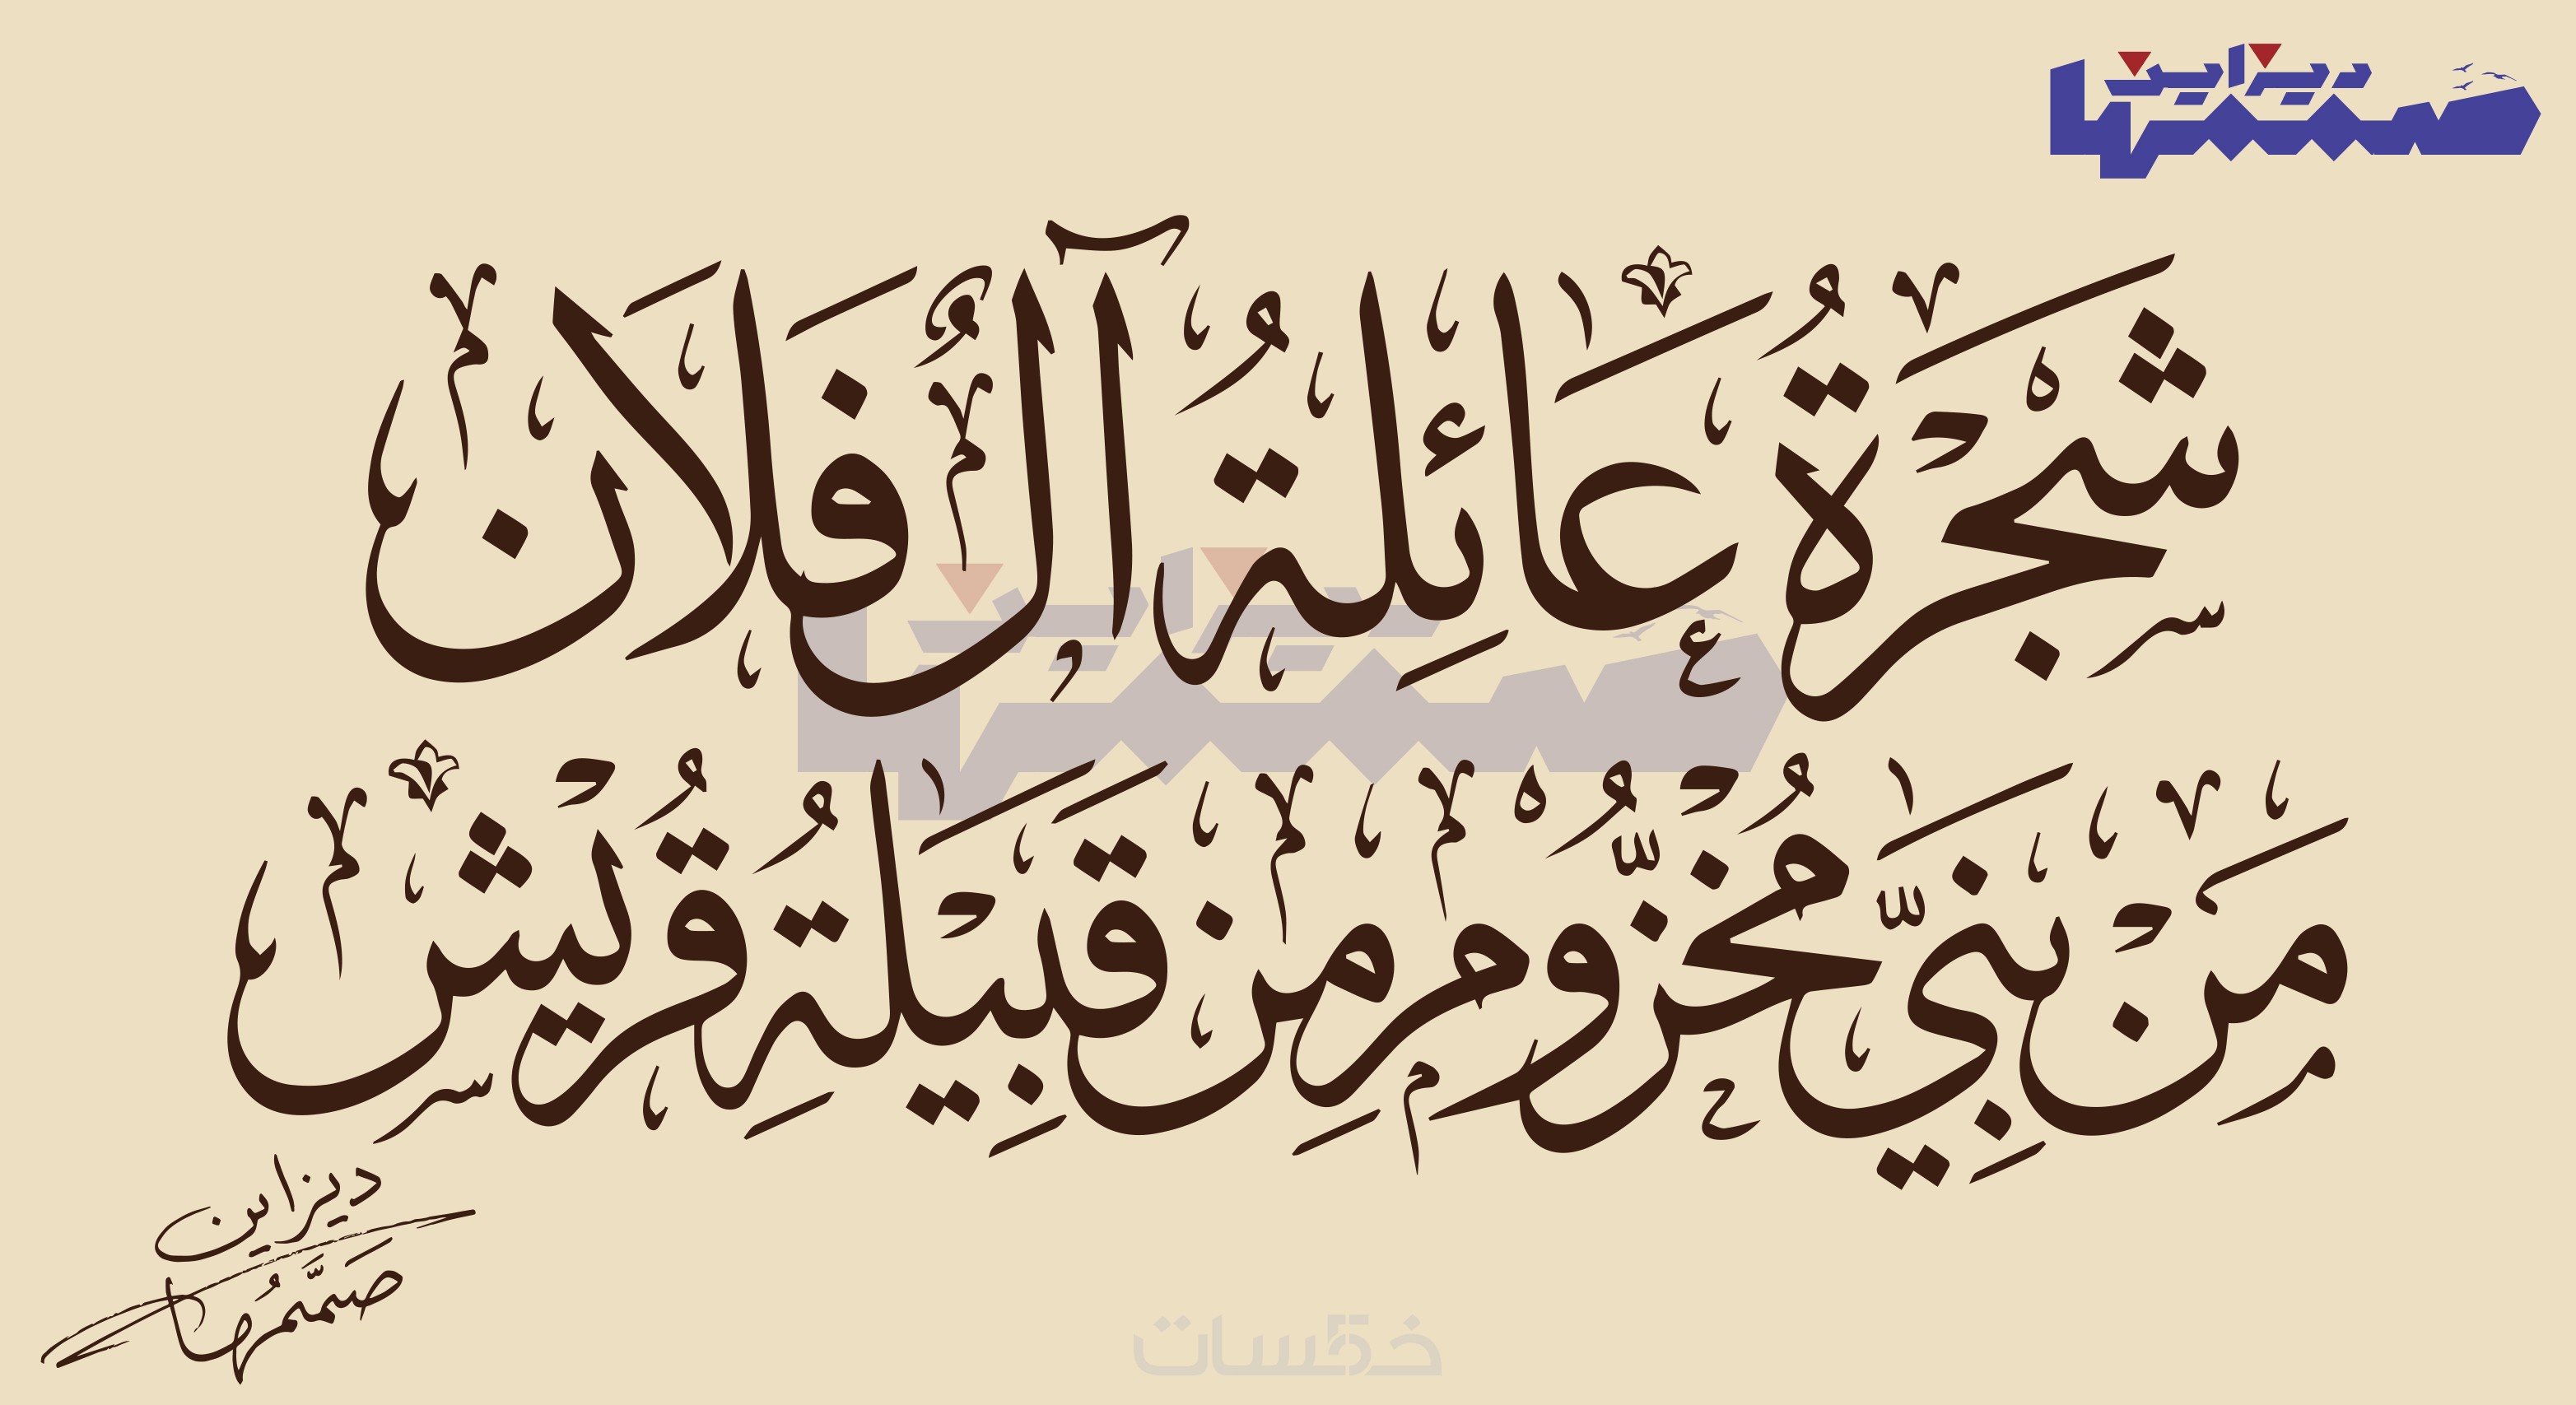 ديزاين
صممها
شَجَرَةُ عَائِلَةُ آلُ فَلَان
مَنْ بَنِيِّ مُخْزُّومْ مِن قَبِيْلَةِ قُرَيْش
ديزاين
صَمَّمُها
ديزاين
صممها
خمسات